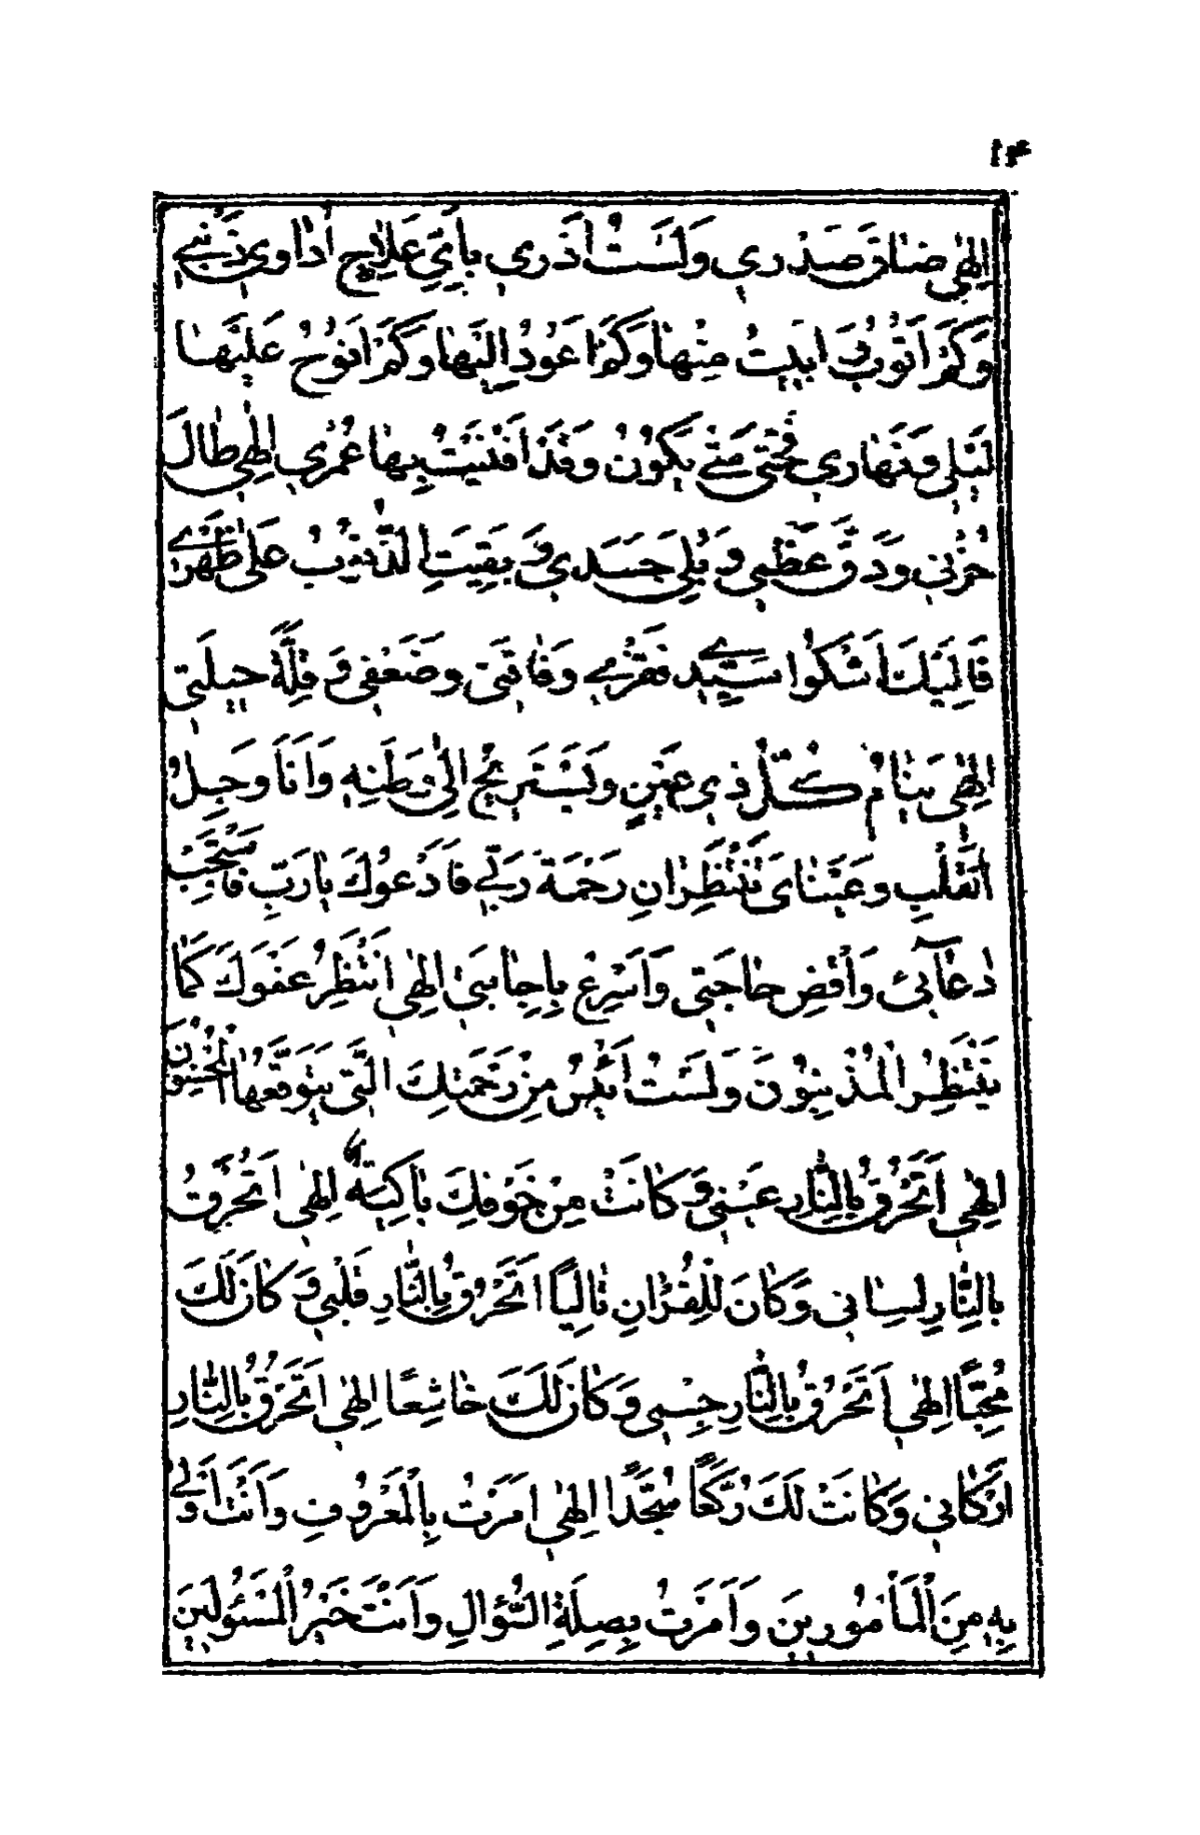 ۱۴
اِلٰهِي ضَاقَ صَدْرِي وَلَسْتُ اَدْرِي بِاَيِّ عِلَاجٍ اُدَاوِي ذَنْبِي
وَكَمْ اَتُوبُ فِي اَبَيْتُ مِنْهَا وَكَمْ اَعُودُ اِلَيْهَا وَكَمْ اَنُوحُ عَلَيْهَا
لَيْلِي وَنَهَارِي فَحَتّٰى مَتٰى يَكُونُ وَقَدْ اَفْنَيْتُ بِهَا عُمْرِي اِلٰهِي طَالَ
حُزْنِي وَدَقَّ عَظْمِي وَبُلِيَ جَسَدِي وَبَقِيَتِ الذُّنُوبُ عَلٰى ظَهْرِي
فَاِلَيْكَ اَشْكُوا سَيِّدِي فَقْرِي وَفَاقَتِي وَضَعْفِي وَقِلَّةَ حِيلَتِي
اِلٰهِي يَنَامُ كُلُّ ذِي عَيْنٍ وَيَسْتَرِيحُ اِلٰى وَطَنِهِ وَاَنَا وَجِلُ
الْقَلْبِ وَعَيْنَايَ تَنْتَظِرَانِ رَحْمَةَ رَبِّي فَاَدْعُوكَ يَا رَبِّ فَاسْتَجِبْ
دُعَآئِي وَاقْضِ حَاجَتِي وَاَسْرِعْ بِاِجَابَتِي اِلٰهِي اَنْتَظِرُ عَفْوَكَ كَمَا
يَنْتَظِرُ الْمُذْنِبُونَ وَلَسْتُ اَيْئَسُ مِنْ رَحْمَتِكَ الَّتِي يَتَوَقَّعُهَا الْمُحْسِنُونَ
اِلٰهِي اَتُحْرِقُ بِالنَّارِ عَيْنِي وَكَانَتْ مِنْ خَوْفِكَ بَاكِيَةً اِلٰهِي اَتُحْرِقُ
بِالنَّارِ لِسَانِي وَكَانَ لِلْقُرْاٰنِ تَالِيًا اَتُحْرِقُ بِالنَّارِ قَلْبِي وَكَانَ لَكَ
مُحِبًّا اِلٰهِي اَتُحْرِقُ بِالنَّارِ جِسْمِي وَكَانَ لَكَ خَاشِعًا اِلٰهِي اَتُحْرِقُ بِالنَّارِ
اَرْكَانِي وَكَانَتْ لَكَ رُكَّعًا سُجَّدًا اِلٰهِي اَمَرْتَ بِالْمَعْرُوفِ وَاَنْتَ اَوْلٰى
بِهِ مِنَ الْمَأْمُورِينَ وَاَمَرْتَ بِصِلَةِ السُّؤَالِ وَاَنْتَ خَيْرُ الْمَسْئُولِينَ